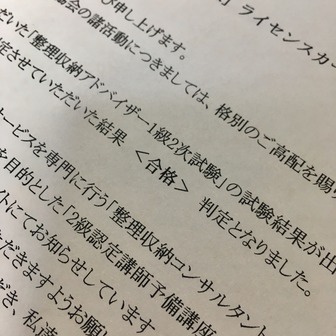 」ライセンスカー
び申し上げます。
協会の諸活動につきましては、格別のご高配を賜
だいた「整理収納アドバイザー1級2次試験」の試験結果が出
定させていただいた結果　＜合格＞　判定となりました。
サービスを専門に行う「整理収納コンサルタント
を目的とした「2級認定講師予備講座
イトにてお知らせしています
ただきますようお願
だき、私